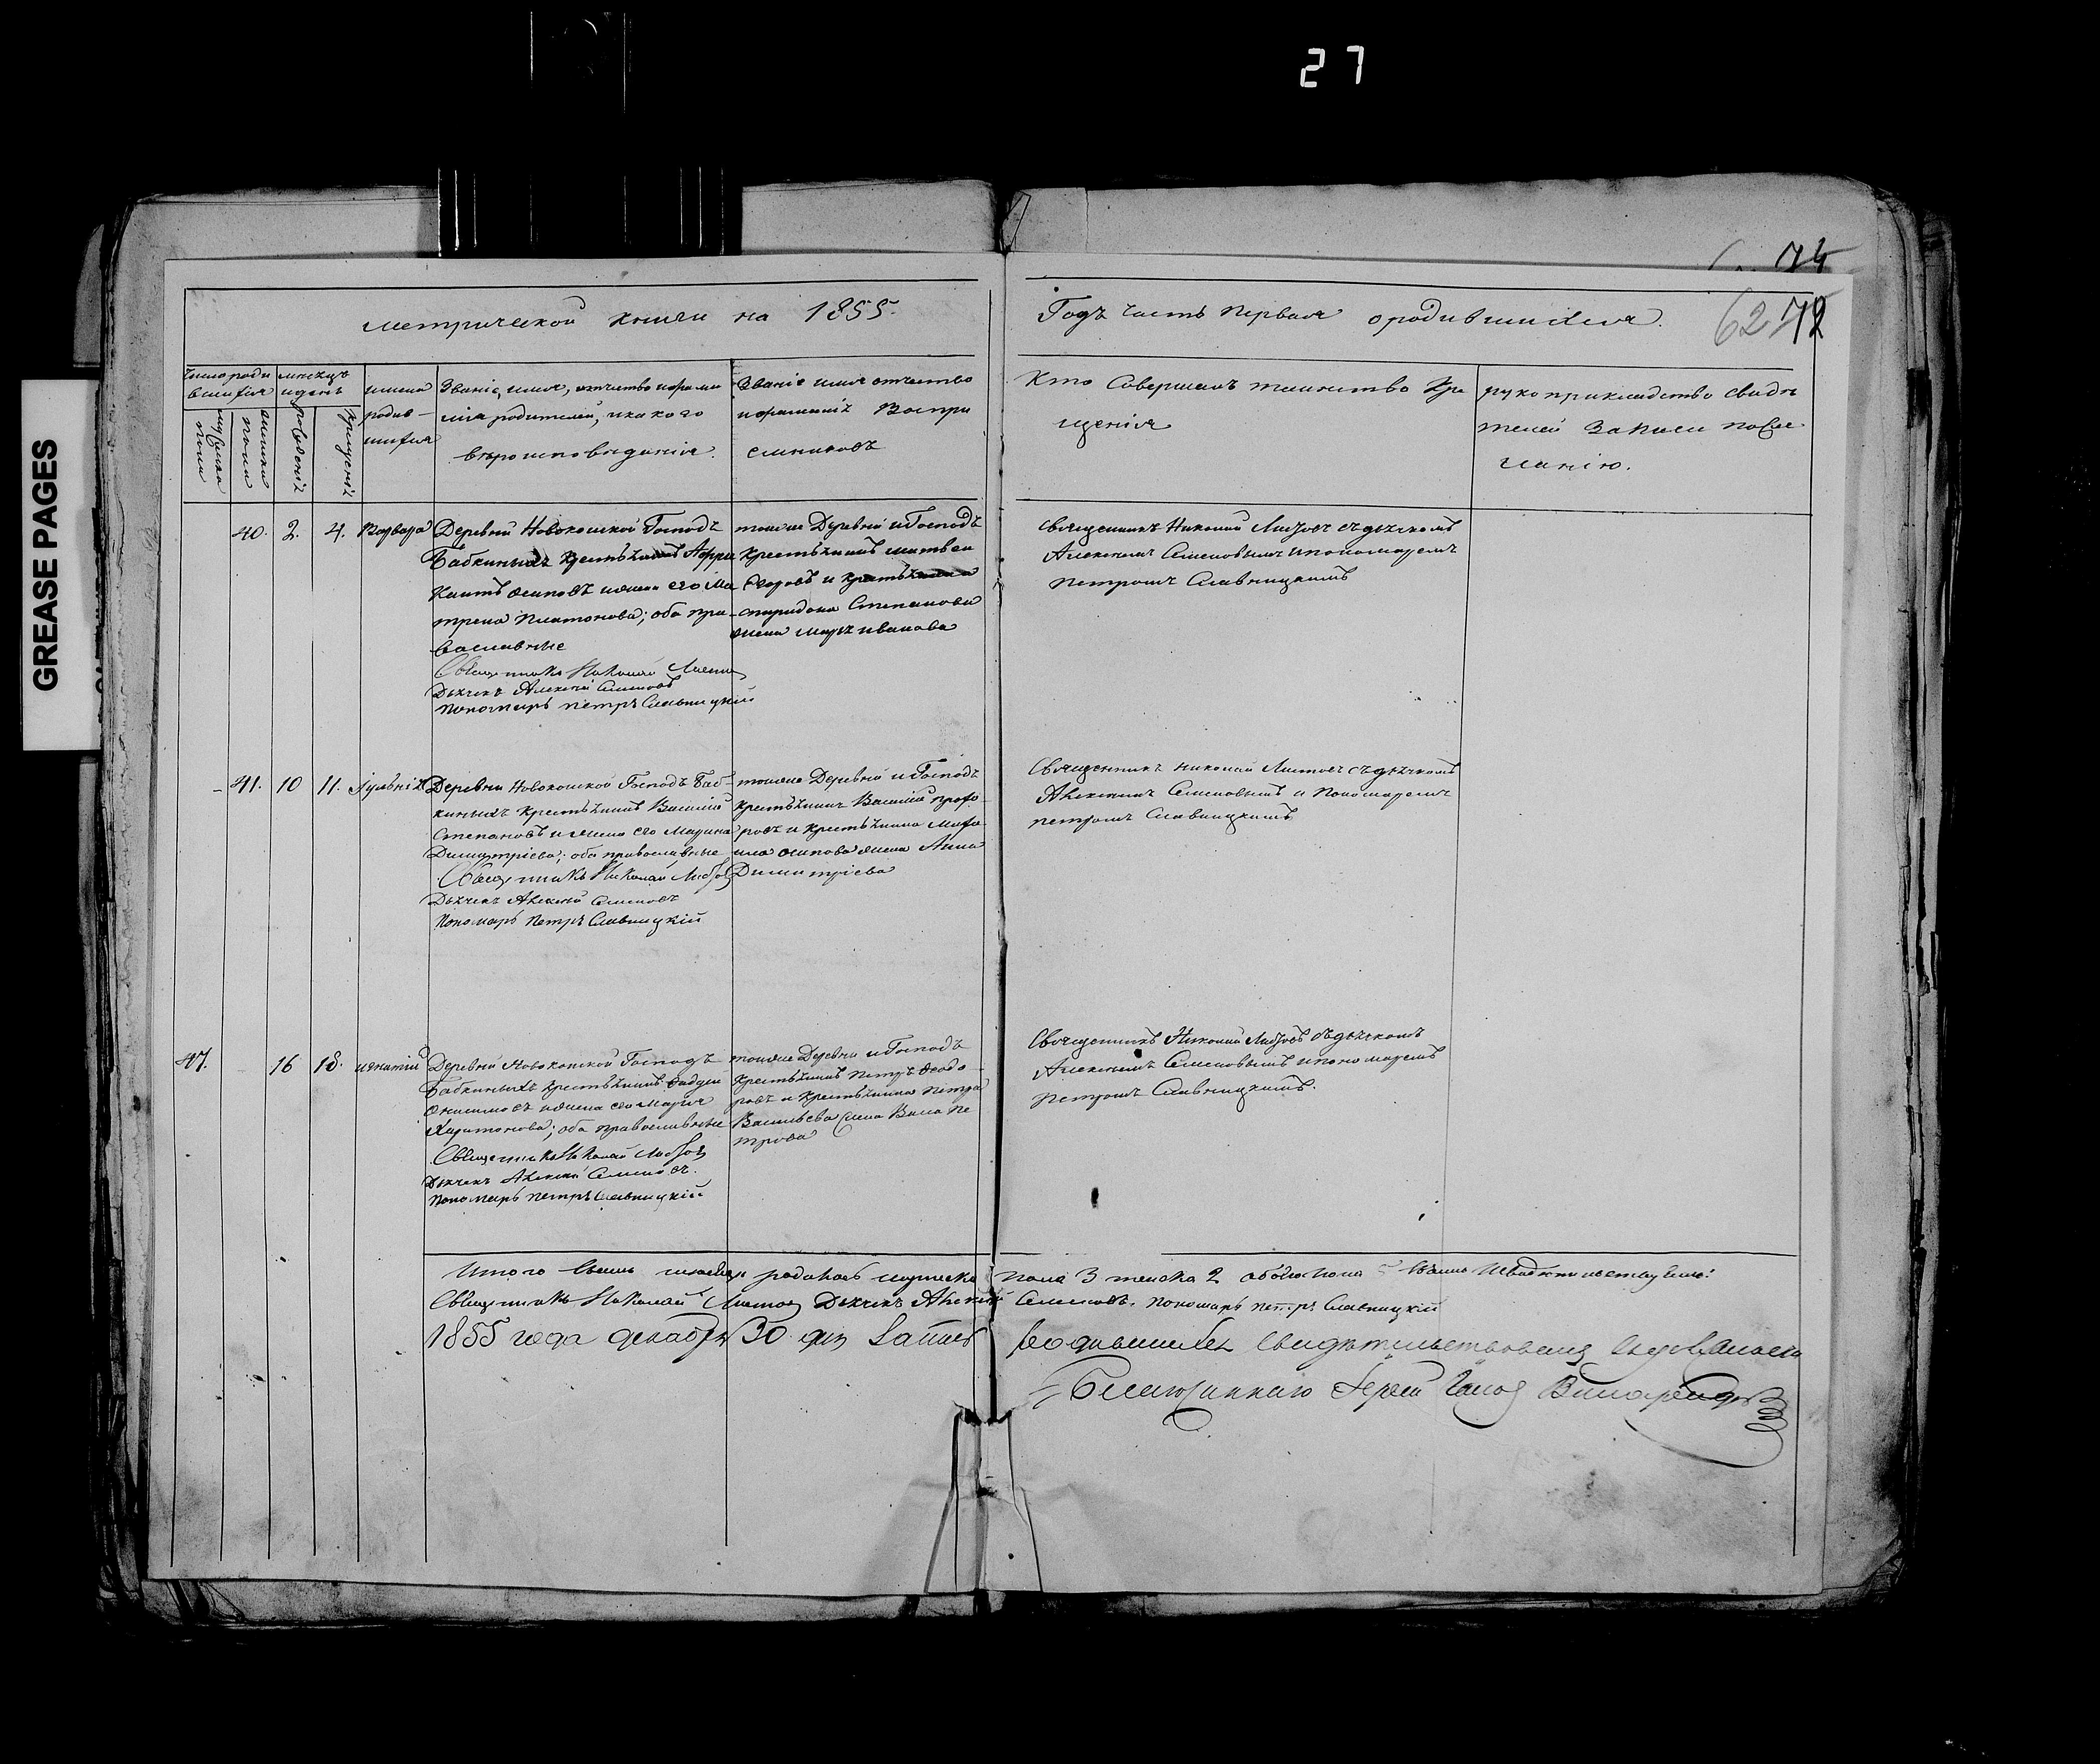 27
GREASE PAGES
74
62 72
метрической книги на 1855.
Годъ часть первая о родившихся.
Число роди
вшихся
мужеска
пола
женска
пола
месяцъ
и день
рожденія
крещенія
имена
родив-
шихся
Званіе, имя, отчество и фами
лія родителей, и какого
вѣроисповѣданія.
Званіе имя отчество
и фамилія Воспри
емниковъ
Кто Совершалъ таинство Кре
щенія
рукоприкладство свидѣ
телей записи по же
ланію.
40. 2. 4. Варвара
Деревни Новокошской Господъ
Бабкиныхъ крестьянинъ Афри
кантъ Осиповъ и жена его Ма
трена Платонова; оба пра-
вославные
Священникъ Николай
Дьячекъ Алексей Семеновъ
Пономарь петръСлавницкій
тойже Деревни и Господъ
крестьянинъ матвей
Егоровъ и
спиридона Степанова
жена марья иванова
Священникъ Николай съ дьячкомъ
Алексеемъ Семеновымъ и пономаремъ
петромъ Славницкимъ
41. 10 11.
Деревни Новокошской Господъ Баб-
киныхъ крестьянинъ Василій
Степановъ и жена его Марина
Димитріева; оба православные
Священникъ Николай
Дьячекъ Алексей Семеновъ
Пономарь Петръ Славницкій
тойже Деревни и Господъ
крестьянинъ Василій
и крестьянина
осипова жена Анна
Димитріева
Священникъ николай съ дьячкомъ
Алексеемъ Семеновымъ и Пономаремъ
петромъ Славницкимъ
47. 16 18. игнатій
Деревни Новокошской Господъ
Бабкиныхъ крестьянинъ фадей
Онисимовъ и жена его Марія
Харитонова; оба православные
Священникъ Николай
Дьячекъ Алексей Семеновъ.
Пономарь Петръ Славницкій
тойже Деревни и Господъ
крестьянинъ Петръ Федо
ровъ и крестьянина Петра
Васильева жена Пе
трова
Священникъ Николай съ дьячкомъ
Алексеемъ Семеновымъ и пономаремъ
Петромъ Славницкимъ.
Итого родилось мужеска пола 3 женска 2 обоего пола 5
Священникъ Николай Дьячекъ Алексей Семеновъ. Пономарь петръ Славницкій
1855 года декабря 30 дня Запись родившихся свидѣтельствовалъ
Іерей